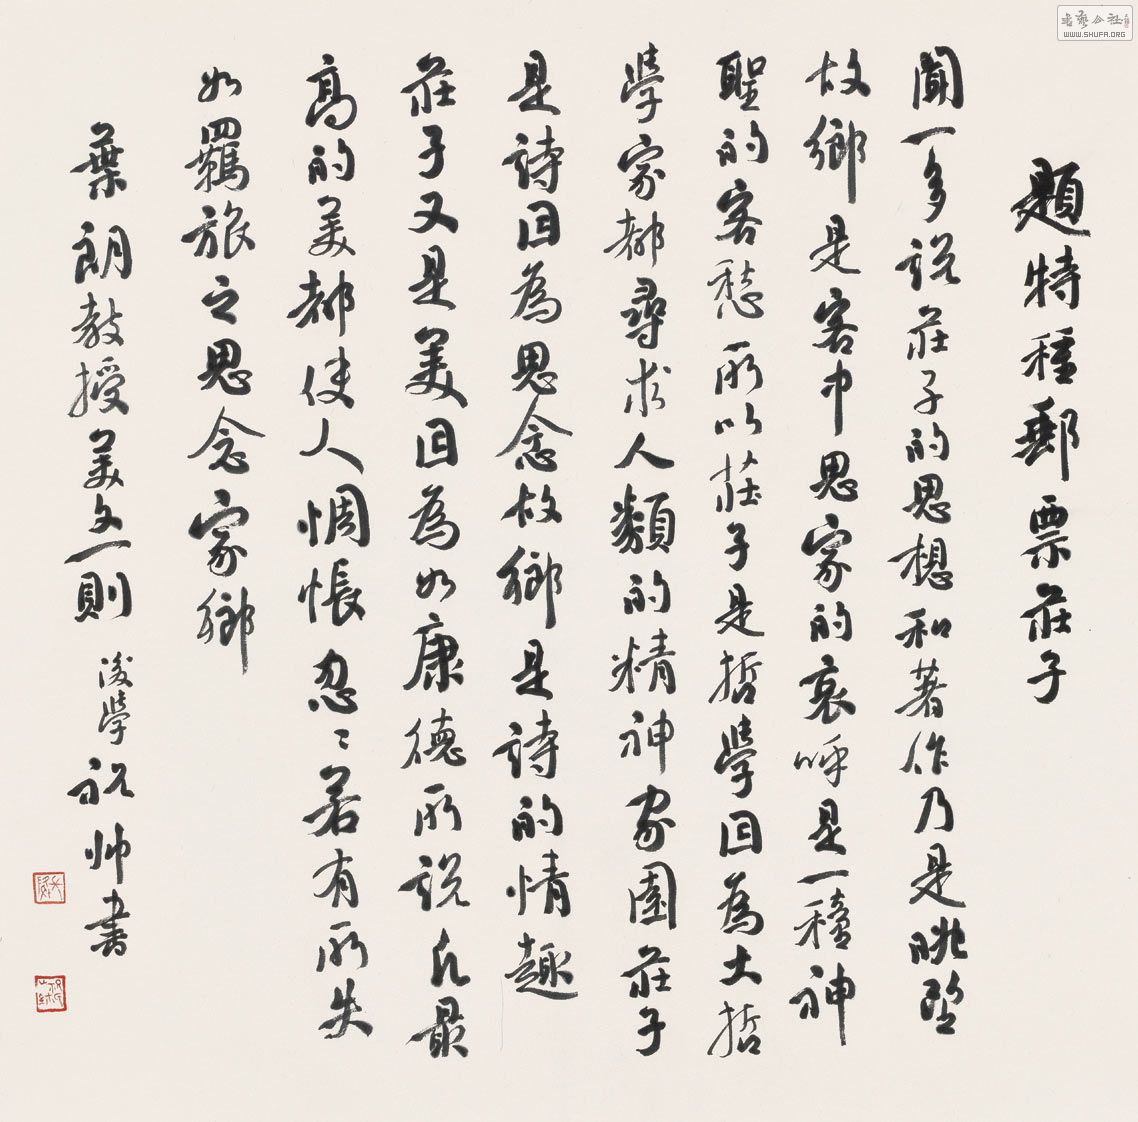 題特種郵票莊子
聞一多説莊子的思想和著作乃是眺望
故鄉是客中思家的哀呼是一種神
聖的客愁所以莊子是哲學因為大哲
學家都尋求人類的精神家園莊子
是詩因為思念故鄉是詩的情趣
莊子又是美因為如康德所説凡最
高的美都使人惆悵忽〻若有所失
如羈旅之思念家鄉
葉朗教授美文一則 後學祝帥書
書藝公社
WWW.SHUFA.ORG